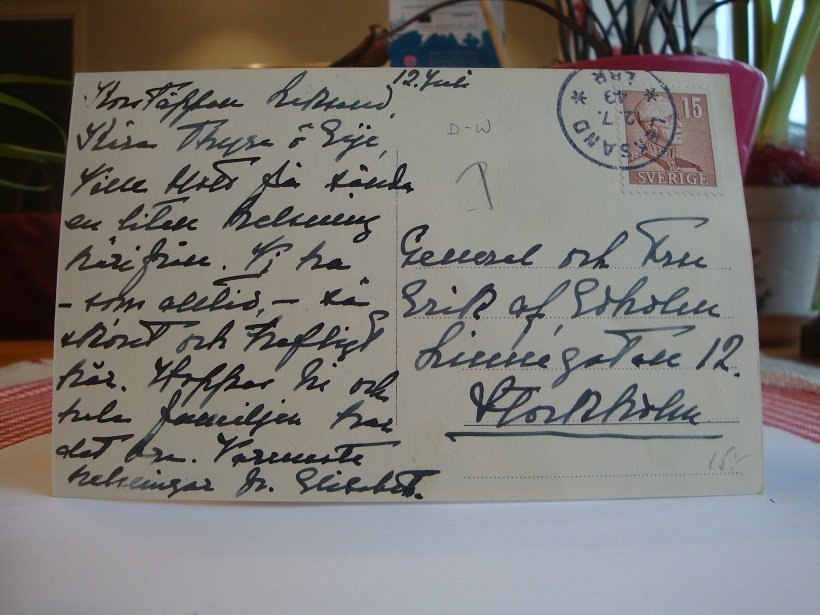 12 Juli
Korstäppan Leksand,
Kära Thyra o
Ville blott få sända
en liten helsning
härifrån. Vi ha
- som alltid, - så
skönt och
här. Hoppas Ni och
hela familjen har
det bra. Varmaste
helsningar Fr. Elisabet.
D-W
LEKSAND
12.7.
43
LBR
15
SVERIGE
General och Fru
Erik af Edholm
Linnégatan 12.
Stockholm